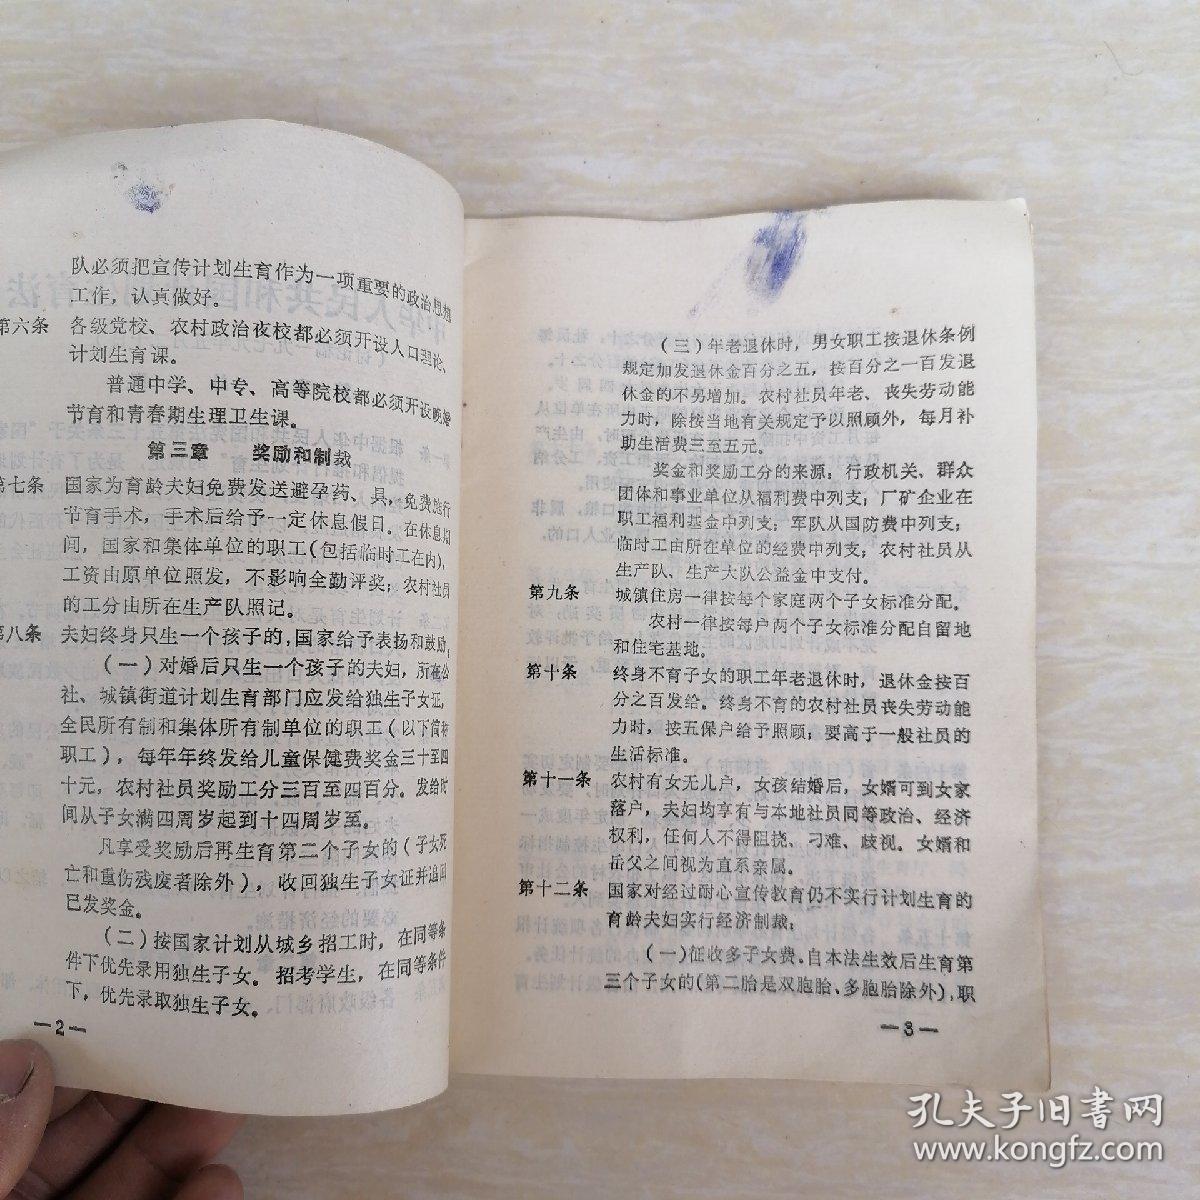 队必须把宣传计划生育作为一项重要的政治思想
工作，认真做好。
第六条 各级党校、农村政治夜校都必须开设人口理论、
计划生育课。
普通中学、中专、高等院校都必须开设晚婚
节育和青春期生理卫生课。
第三章 奖励和制裁
第七条 国家为育龄夫妇免费发送避孕药、具，免费施行
节育手术，手术后给予一定休息假日。在休息期
间，国家和集体单位的职工（包括临时工在内），
工资由原单位照发，不影响全勤评奖；农村社员
的工分由所在生产队照记。
第八条 夫妇终身只生一个孩子的，国家给予表扬和鼓励；
（一）对婚后只生一个孩子的夫妇，所在公
社、城镇街道计划生育部门应发给独生子女证，
全民所有制和集体所有制单位的职工（以下简称
职工），每年年终发给儿童保健费奖金三十至四
十元，农村社员奖励工分三百至四百分。发给时
间从子女满四周岁起到十四周岁至。
凡享受奖励后再生育第二个子女的（子女死
亡和重伤残废者除外），收回独生子女证并追回
已发奖金。
（二）按国家计划从城乡招工时，在同等条
件下优先录用独生子女。招考学生，在同等条件
下，优先录取独生子女。
—2—
（三）年老退休时，男女职工按退休条例
规定加发退休金百分之五，按百分之一百发退
休金的不另增加。农村社员年老、丧失劳动能
力时，除按当地有关规定予以照顾外，每月补
助生活费三至五元。
奖金和奖励工分的来源；行政机关、群众
团体和事业单位从福利费中列支；厂矿企业在
职工福利基金中列支；军队从国防费中列支；
临时工由所在单位的经费中列支；农村社员从
生产队、生产大队公益金中支付。
第九条 城镇住房一律按每个家庭两个子女标准分配。
农村一律按每户两个子女标准分配自留地
和住宅基地。
第十条 终身不育子女的职工年老退休时，退休金按百
分之百发给。终身不育的农村社员丧失劳动能
力时，按五保户给予照顾，要高于一般社员的
生活标准。
第十一条 农村有女无儿户，女孩结婚后，女婿可到女家
落户，夫妇均享有与本地社员同等政治、经济
权利，任何人不得阻挠、刁难、歧视。女婿和
岳父之间视为直系亲属。
第十二条 国家对经过耐心宣传教育仍不实行计划生育的
育龄夫妇实行经济制裁；
（一）征收多子女费。自本法生效后生育第
三个子女的（第二胎是双胞胎、多胞胎除外），职
—3—
孔夫子旧书网
www.kongfz.com